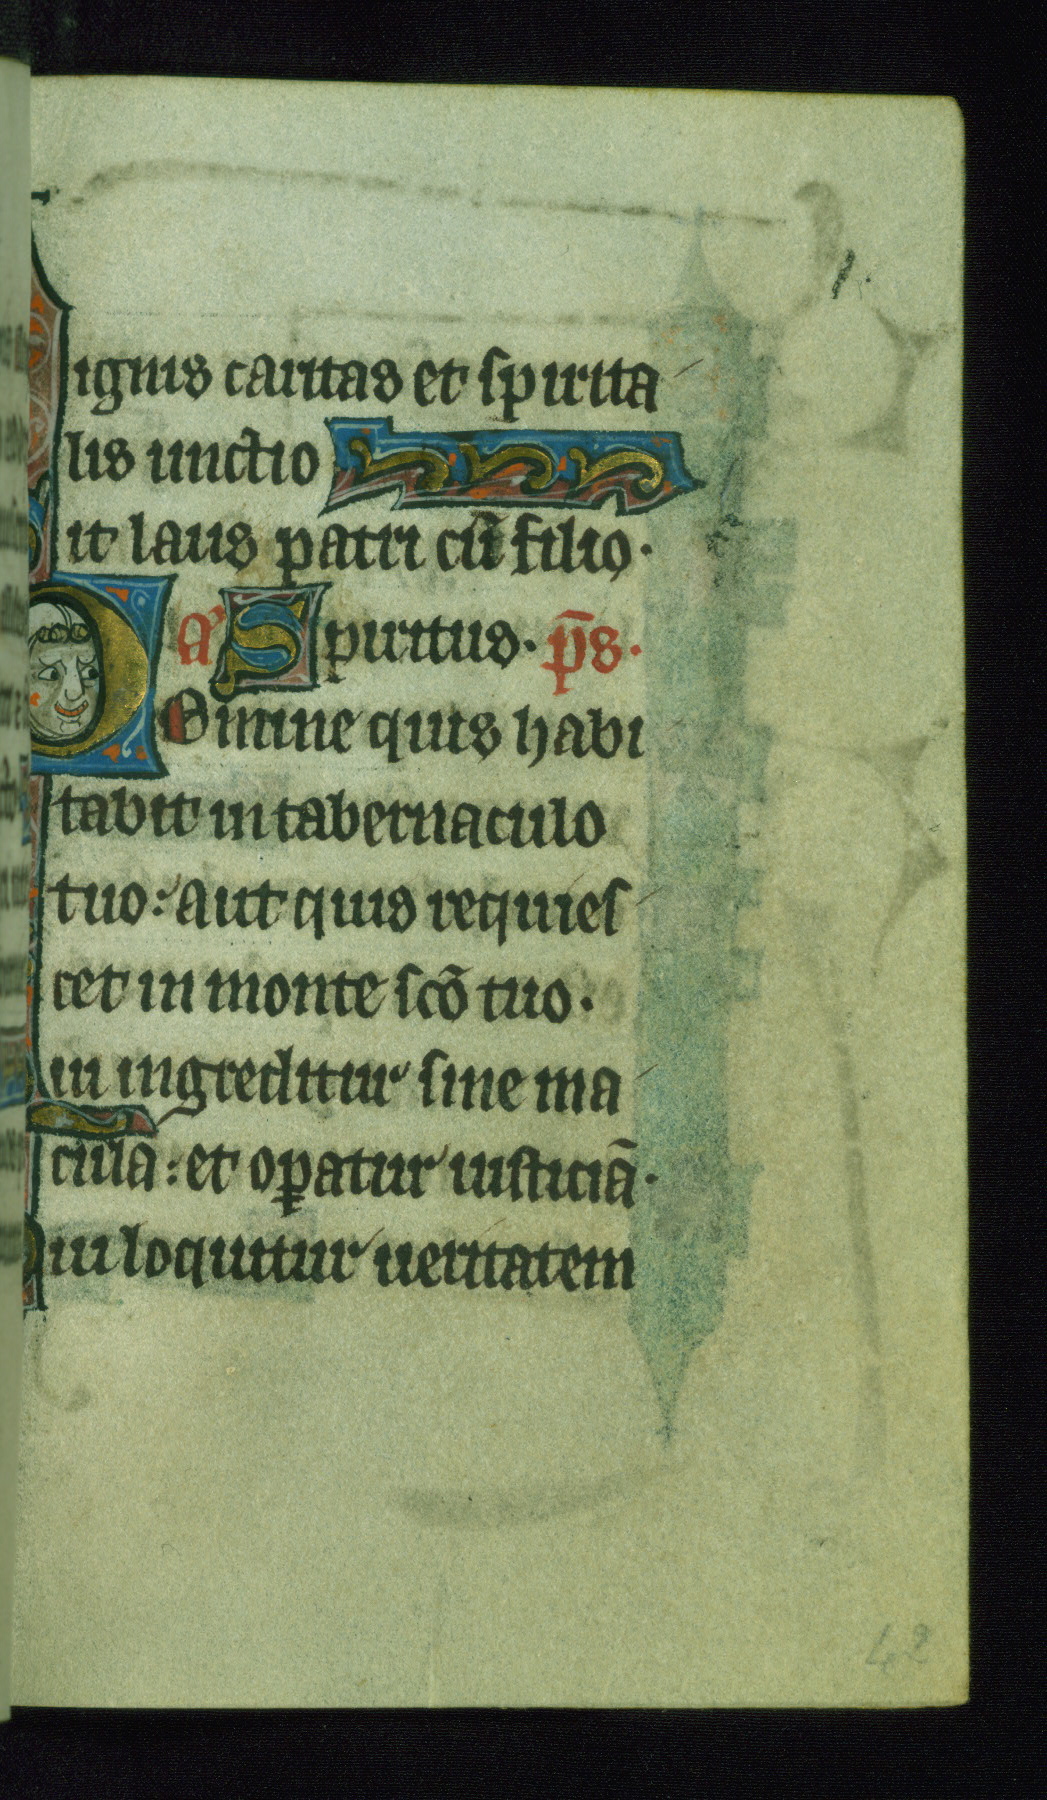 ignis caritas et spirita
lis unctio
it laus patri cū filio.
a Spiritus. p̄s.
Domine quis habi
tabit in tabernaculo
tuo: aut quis requies
cet in monte sc̄o tuo.
ui ingreditur sine ma
cula: et oꝑatur iusticiā.
Qui loquitur ueritatem
42